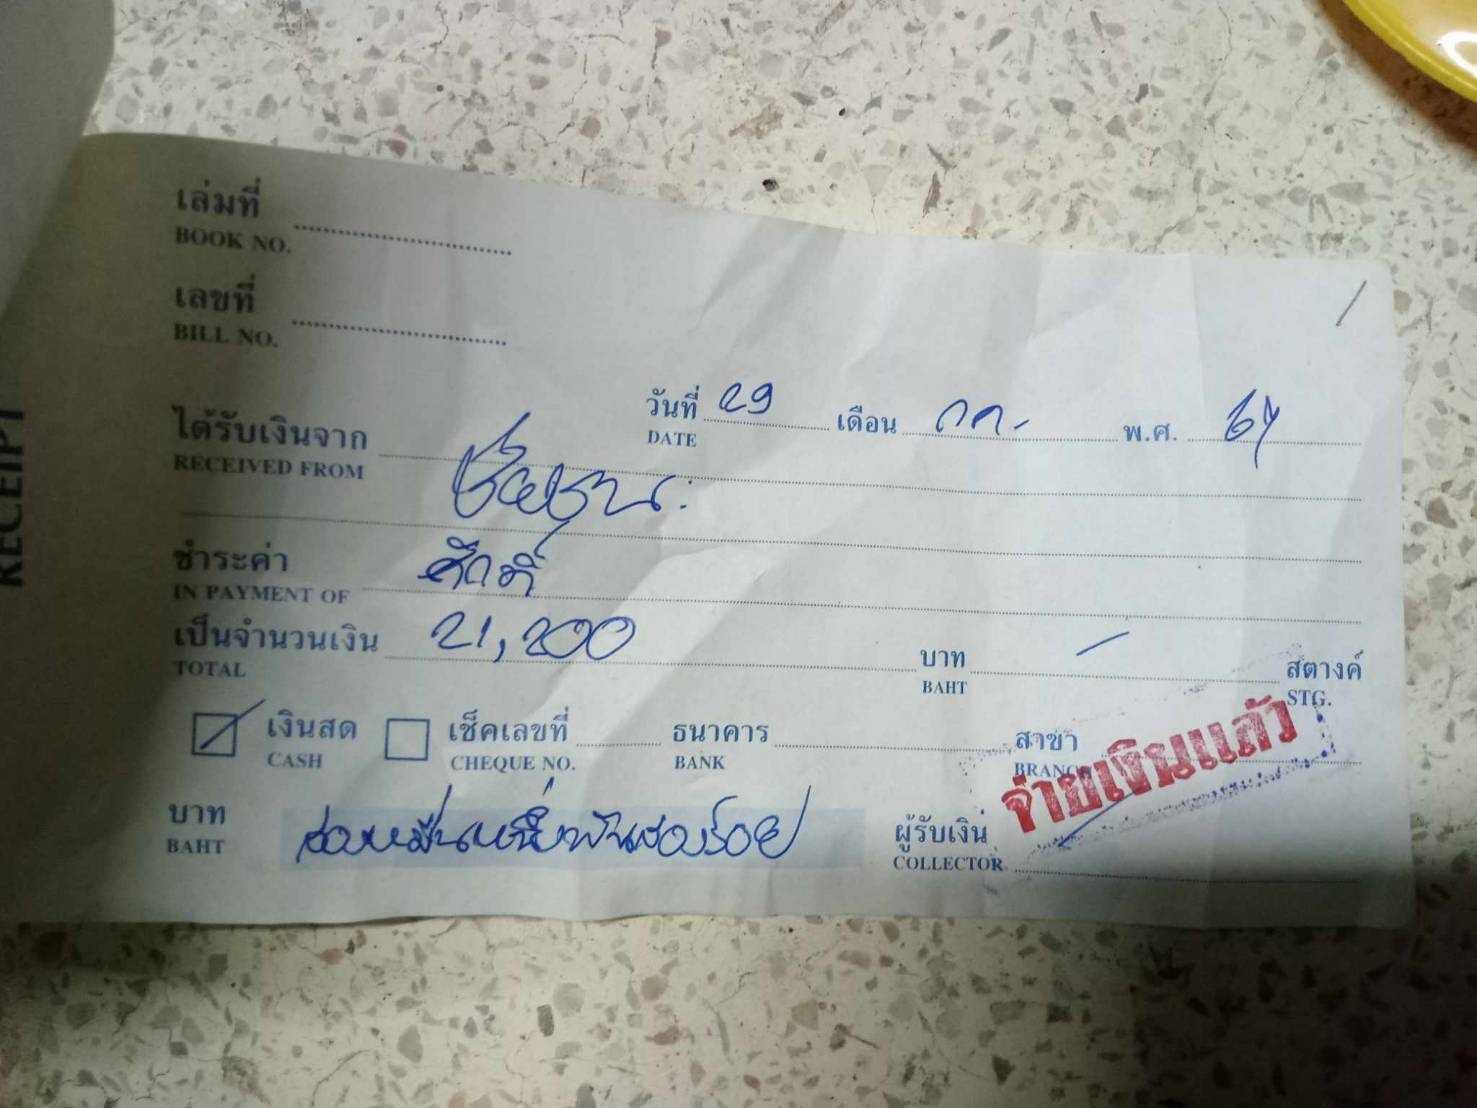 RECEIPT
เล่มที่
BOOK NO.
เลขที่
BILL NO.
วันที่ 29 เดือน กค. พ.ศ. 67
DATE
ได้รับเงินจาก
RECEIVED FROM
ชำระค่า
IN PAYMENT OF
เป็นจำนวนเงิน 21,200 บาท - สตางค์
TOTAL BAHT STG.
เงินสด เช็คเลขที่ ธนาคาร สาขา
CASH CHEQUE NO. BANK BRANCH
จ่ายเงินแล้ว
บาท สองหมื่นหนึ่งพันสองร้อย ผู้รับเงิน
BAHT COLLECTOR